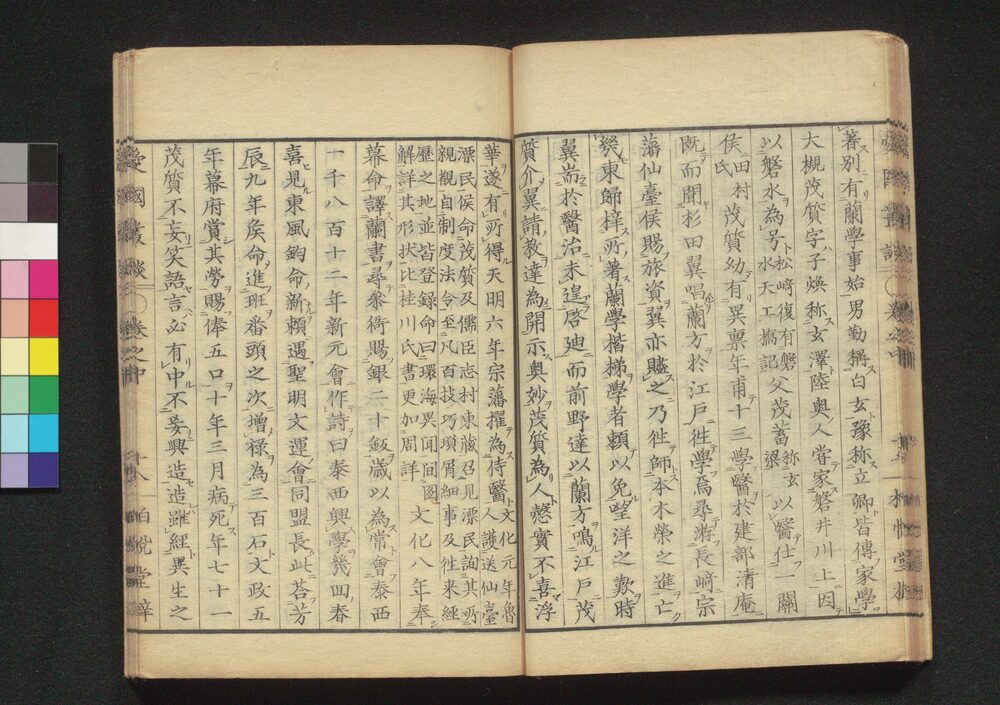 著別有蘭學事始男勤稱白玄豫称立卿皆傳家學
大槻茂質字子煥称玄澤陸奥人甞家磐井川上因
以磐水為号松﨑復有磐水天工搗記父茂蓄称玄梁以醫仕一關
侯田村氏茂質幼有異禀年甫十三學醫於建部清庵
既而聞杉田翼唱蘭方於江戸徃學焉尋游長﨑宗
藩仙臺侯賜旅資翼亦贐之乃徃師本木榮之進亡
幾東歸梓所著蘭學楷梯學者頼以免望洋之歎時
翼耑於醫治未遑啓廸而前野達以蘭方鳴江戸茂
質介翼請教達為開示奥妙茂質為人愨實不喜浮
華遂有所得天明六年宗藩擢為侍醫文化元年魯人護送仙臺
漂民侯命茂質及儒臣志村東蔵召見漂民詢其所
親観自制度法令至凡百技巧瑣屑細事及徃来經
歴之地並皆登録命曰環海異聞間圖
解詳其形状比桂川氏書更加周詳文化八年奉
幕命譯蘭書尋参衙賜銀二十鈑歳以為常會泰西
一千八百十二年新元會作詩曰泰西興學幾回春
喜見東風鈞命新頼遇聖明文運會同盟長此荅芳
辰九年矦命進班番頭之次増禄為三百石文政五
年幕府賞其勞賜俸五口十年三月病死年七十一
茂質不妄笑語言必有中不妄興造造雖經異生之
愛國叢談
卷之中
十八
柏悦堂梓